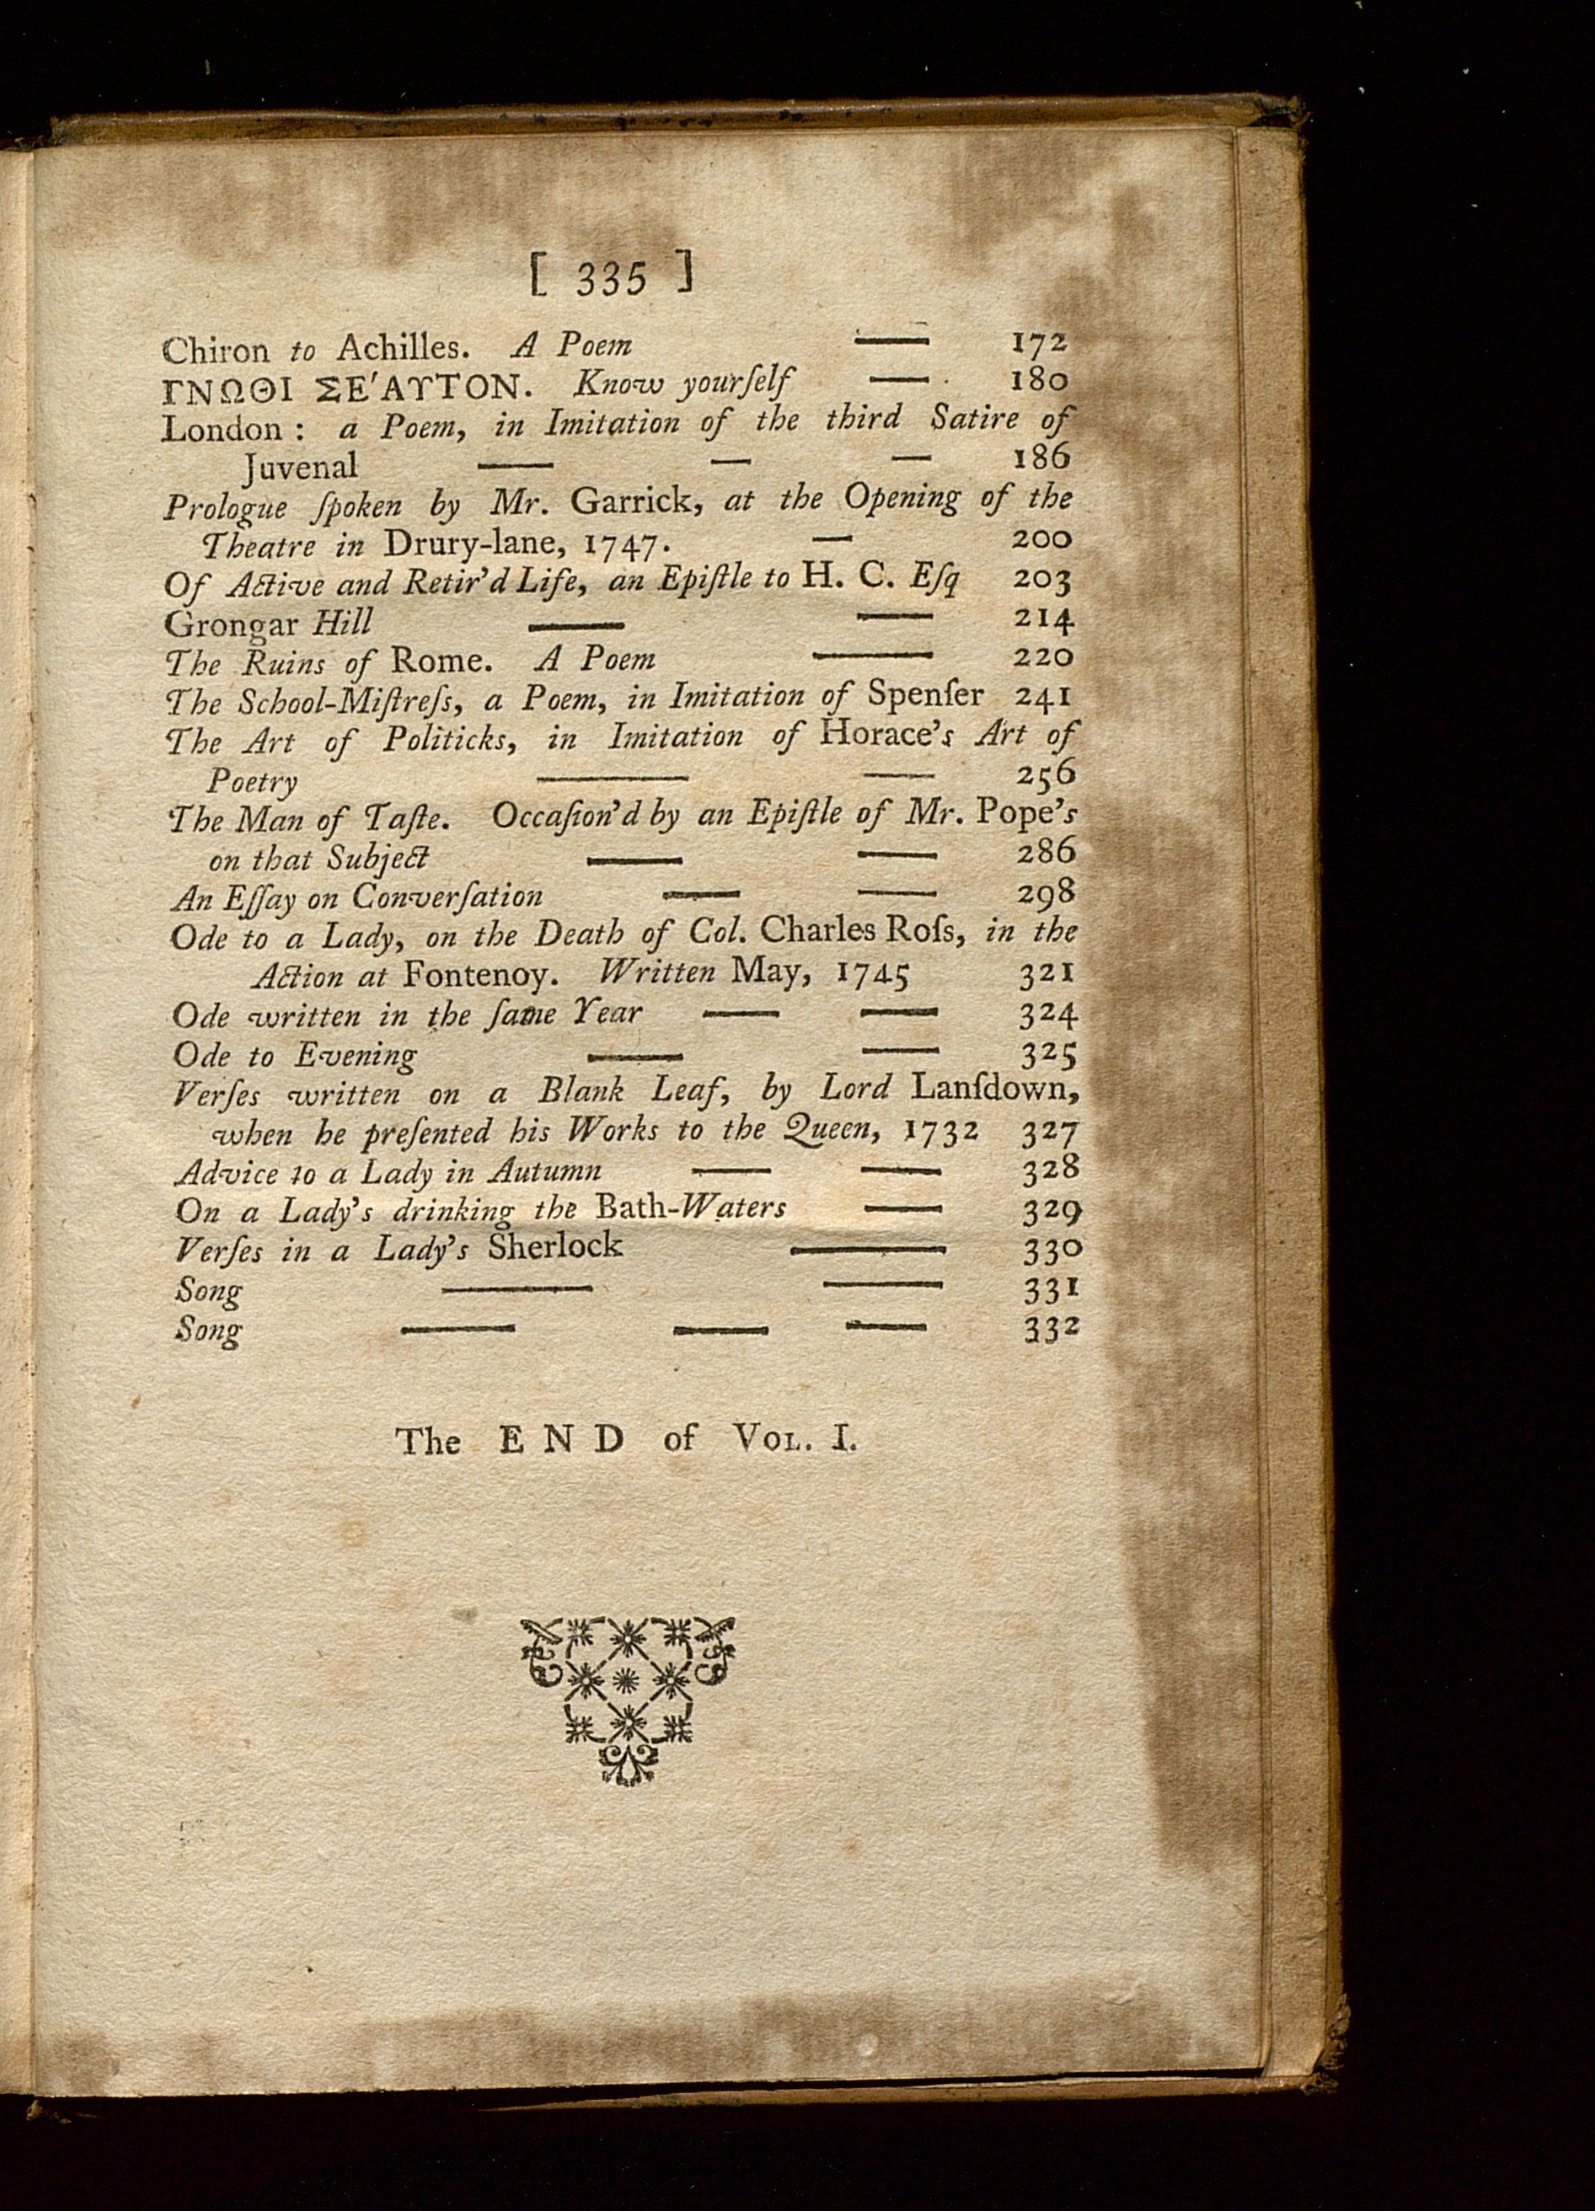 [ 335 ]
Chiron to Achilles. A Poem — 172
ΓΝΩΘΙ ΣΕ'ΑΥΤΟΝ. Know yourſelf — 180
London : a Poem, in Imitation of the third Satire of
Juvenal — — — 186
Prologue ſpoken by Mr. Garrick, at the Opening of the
Theatre in Drury-lane, 1747. — 200
Of Active and Retir'd Life, an Epiſtle to H. C. Eſq 203
Grongar Hill — — 214
The Ruins of Rome. A Poem — 220
The School-Miſtreſs, a Poem, in Imitation of Spenſer 241
The Art of Politicks, in Imitation of Horace's Art of
Poetry — — 256
The Man of Taſte. Occaſion'd by an Epiſtle of Mr. Pope's
on that Subject — — 286
An Eſſay on Converſation — — 298
Ode to a Lady, on the Death of Col. Charles Roſs, in the
Action at Fontenoy. Written May, 1745 321
Ode written in the ſame Year — — 324
Ode to Evening — — 325
Verſes written on a Blank Leaf, by Lord Lanſdown,
when he preſented his Works to the Queen, 1732 327
Advice to a Lady in Autumn — — 328
On a Lady's drinking the Bath-Waters — 329
Verſes in a Lady's Sherlock — 330
Song — — 331
Song — — — 332
The END of VOL. I.